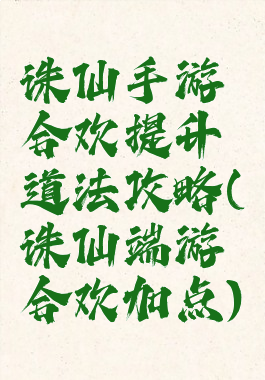 诛仙手游
合欢提升
道法攻略(
诛仙端游
合欢加点)